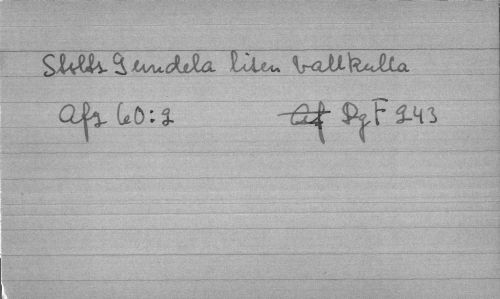 Stolts Gundela liten vallkulla
Afz 60:2 Cf DgF 243